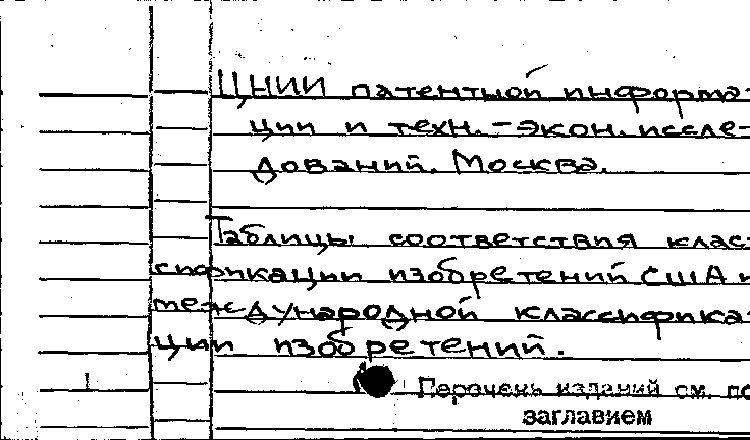 ЦНИИ патентной информа-
ции и техн.-экон. иссле-
дований. Москва.
Таблицы соответствия клас-
сификации изобретений США и
международной классифика-
ции изобретений.
Перечень изданий см. по
заглавием